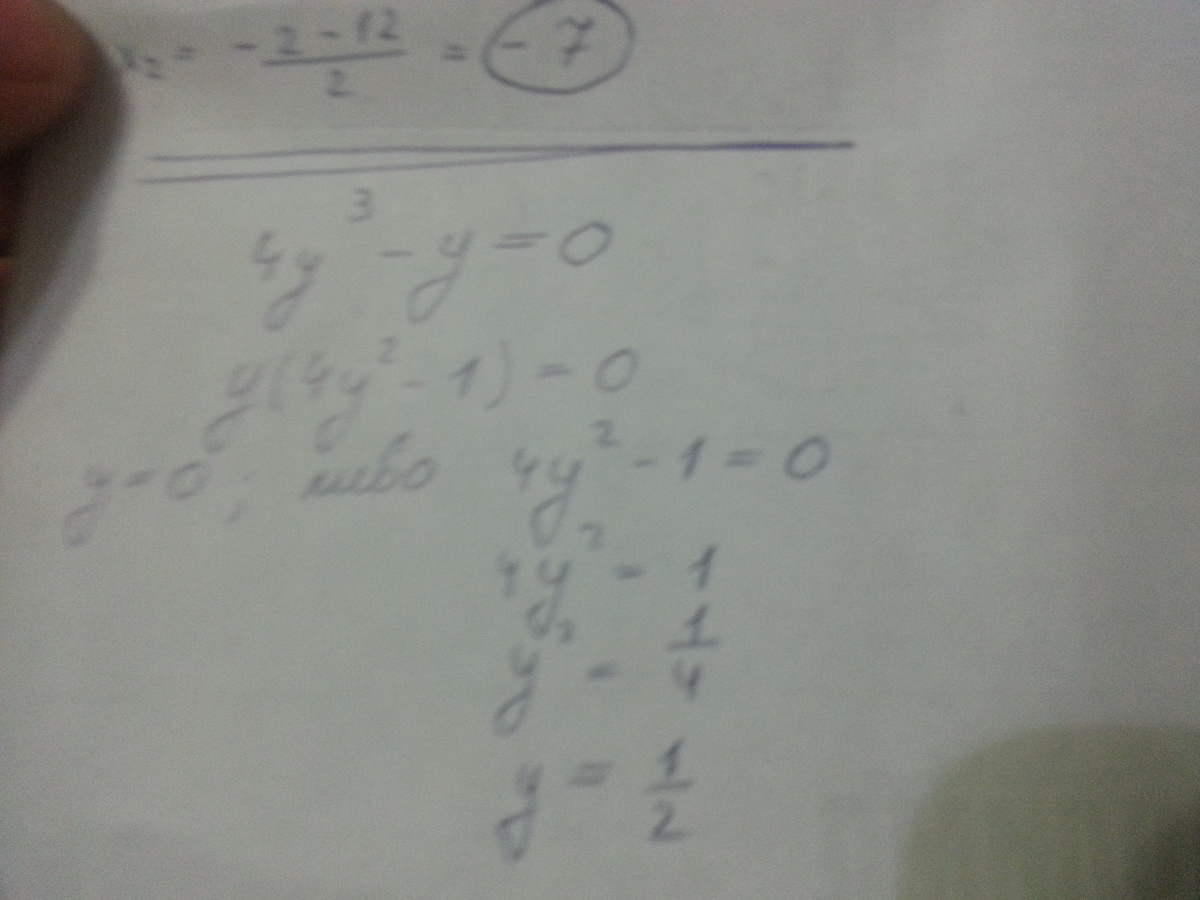 x₂ = -2-12/2 = -7
4y³ - y = 0
y(4y² - 1) = 0
y=0; либо 4y² - 1 = 0
4y² = 1
y² = 1/4
y = 1/2